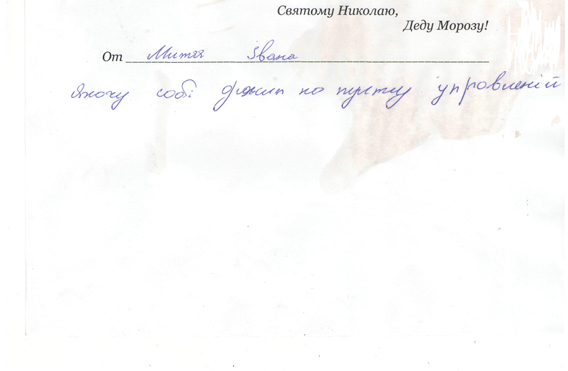 Святому Николаю,
Деду Морозу!
От Митя Івана
Яхочу собі джип на пулту управленій